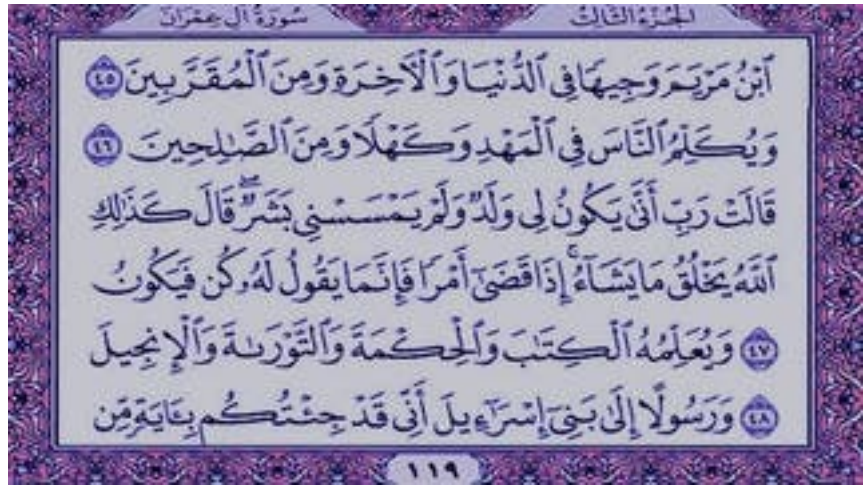 الجزء الثالث
سورة آل عمران
ٱبْنُ مَرْيَمَ وَجِيهًا فِى ٱلدُّنْيَا وَٱلْءَاخِرَةِ وَمِنَ ٱلْمُقَرَّبِينَ ٤٥
وَيُكَلِّمُ ٱلنَّاسَ فِى ٱلْمَهْدِ وَكَهْلًا وَمِنَ ٱلصَّٰلِحِينَ ٤٦
قَالَتْ رَبِّ أَنَّىٰ يَكُونُ لِى وَلَدٌ وَلَمْ يَمْسَسْنِى بَشَرٌ ۖ قَالَ كَذَٰلِكِ
ٱللَّهُ يَخْلُقُ مَا يَشَآءُ ۚ إِذَا قَضَىٰٓ أَمْرًا فَإِنَّمَا يَقُولُ لَهُۥ كُن فَيَكُونُ
٤٧ وَيُعَلِّمُهُ ٱلْكِتَٰبَ وَٱلْحِكْمَةَ وَٱلتَّوْرَىٰةَ وَٱلْإِنجِيلَ
٤٨ وَرَسُولًا إِلَىٰ بَنِىٓ إِسْرَٰٓءِيلَ أَنِّى قَدْ جِئْتُكُم بِـَٔايَةٍ مِّن
١١٩